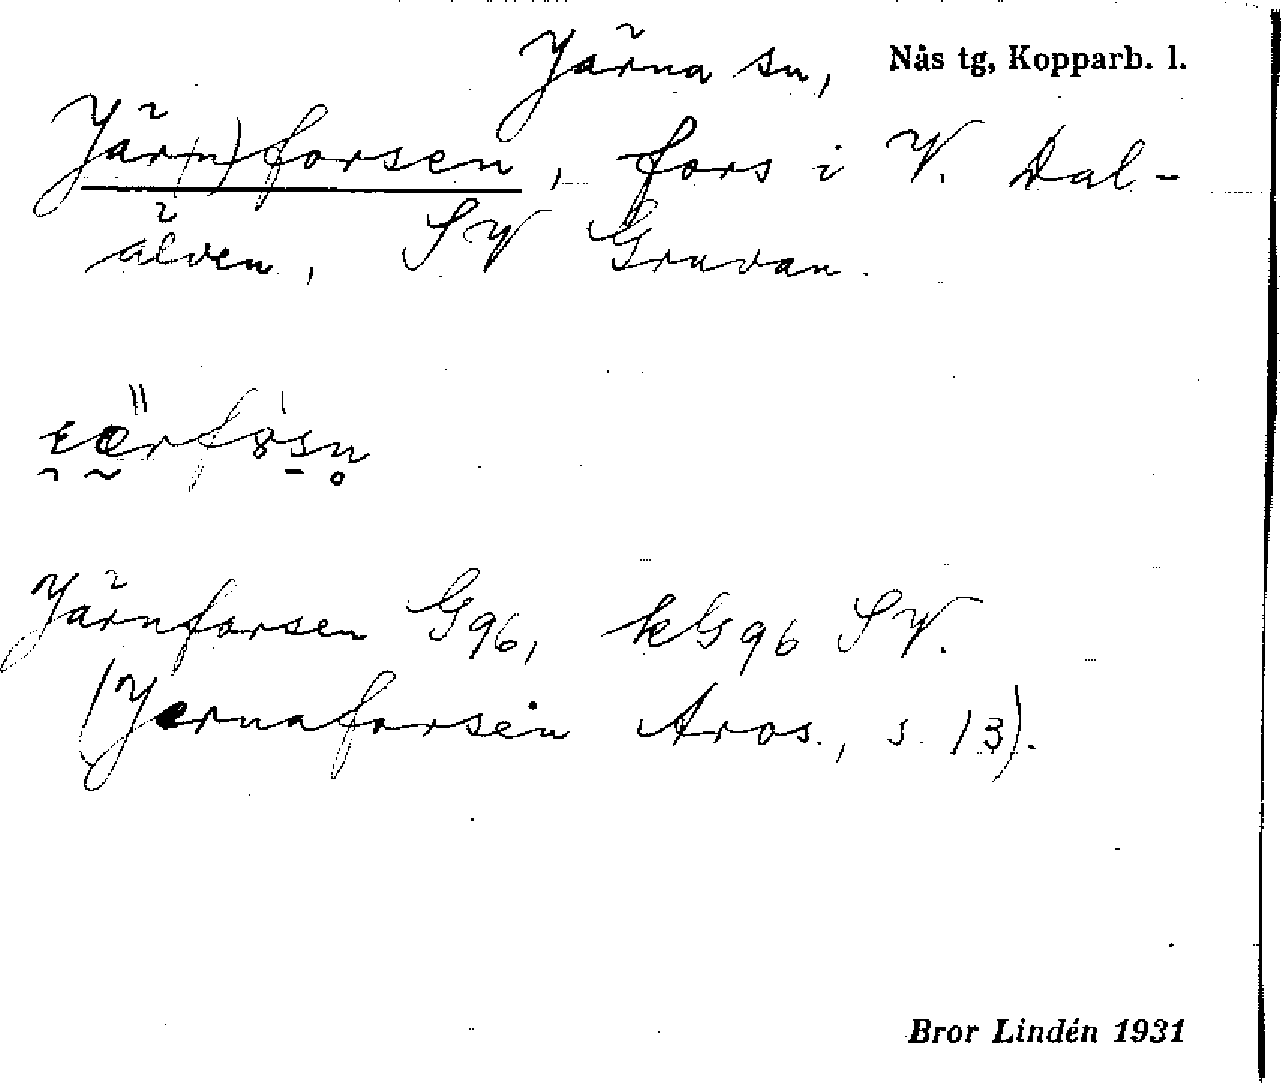 Järna sn, Nås tg, Kopparb. l.
Jär(n)forsen, fors i V. Dal-
älven, SV Gruvan.
Järnforsen G96, kG96 SV.
(Jernaforsen Aros., s. 13).
Bror Lindén 1931